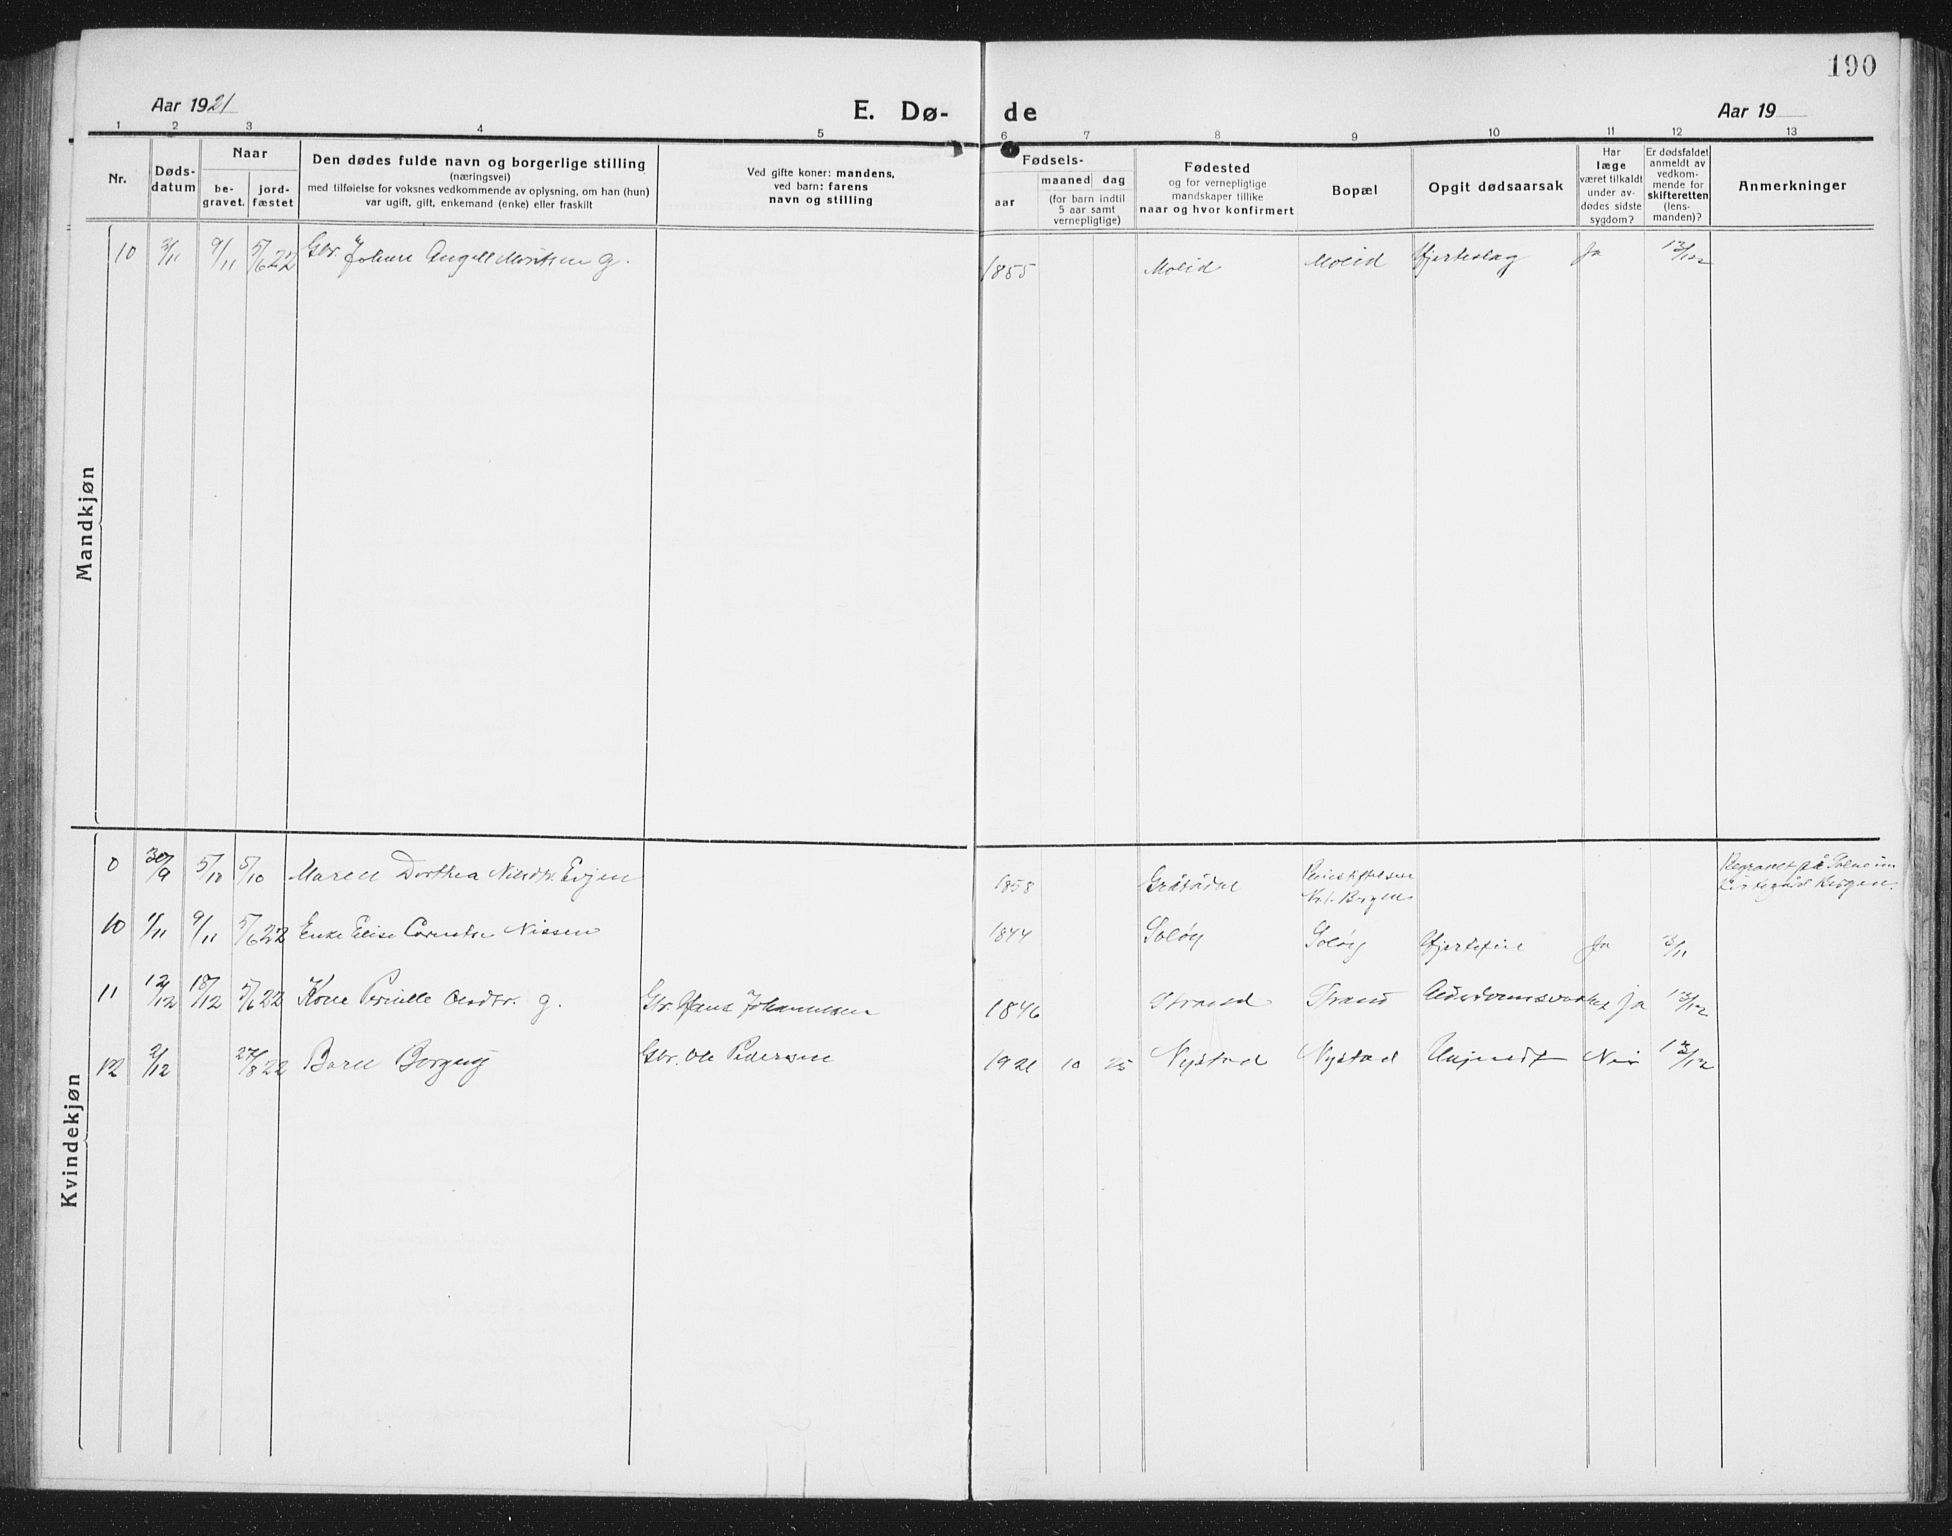 190
Aar 1921
E. Dø-
de
Aar 19
1 2 3 4 5 6 7 8 9 10 11 12 13
Nr.
Døds-
datum
Naar
be-
gravet.
jord-
fæstet
Den dødes fulde navn og borgerlige stilling
(næringsvei)
med tilføielse for voksnes vedkommende av oplysning, om han (hun)
var ugift, gift, enkemand (enke) eller fraskilt
Ved gifte koner: mandens,
ved barn: farens
navn og stilling
Fødsels-
aar
maaned dag
(for barn indtil
5 aar samt
vernepligtige)
Fødested
og for vernepligtige
mandskaper tillike
naar og hvor konfirmert
Bopæl
Opgit dødsaarsak
Har
læge
været tilkaldt
under av-
dødes sidste
sygdom?
Er dødsfaldet
anmeldt av
vedkom-
mende for
skifteretten
(lens-
manden)?
Anmerkninger
Mandkjøn
10 3/11 9/11 5/6 22 Gbr. Johan Angell g. 1855 Molid Molid Hjerteslag Ja 13/12
Kvindekjøn
30/9 5/10 5/10 Maren Dorthea Evjen 1858 Bergen Begravet på
Bergen.
10 1/11 9/11 5/6 22 Enke Elise Nissen 1844 Soløy Soløy Ja 3/11
11 12/12 18/12 5/6 22 Kone Pernille g. Gbr. Hans Johannesen 1846 Strand Strand Ja 13/12
12 2/12 27/8 22 Barn Borgny Gbr. Ole Pedersen 1921 10 25 Nystad Nystad Ukjendt Nei 13/12